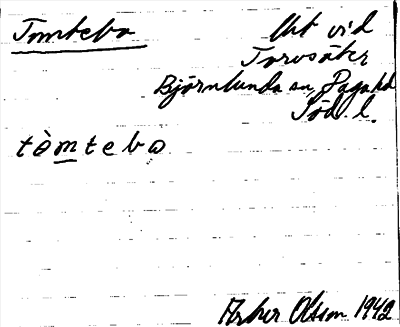 Tomtebo
Urt vid
Torvsäter
Björnlunda sn, Daga hd
Söd. l.
tòmtebo
Olsson 1942